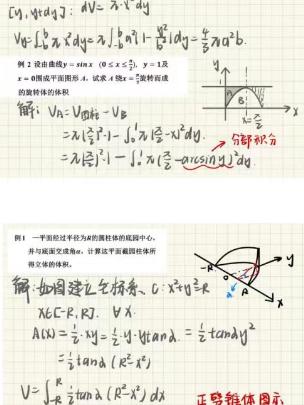 [y, y+dy]: dV = π·x²dy
Vy = ∫_{-b}^{b} π x² dy = π∫_{-b}^{b} a²(1-y²/b²)dy = 4/3 πa²b.
例 2 设由曲线y = sin x (0 ≤ x ≤ π/2), y = 1及
x = 0围成平面图形 A. 试求 A 绕x = π/2旋转而成
的旋转体的体积
解: V_A = V圆柱 - V_B
= π(π/2)²·1 - ∫₀¹ π(π/2 - x)² dy.
分部积分
= π(π/2)²·1 - ∫₀¹ π(π/2 - arcsin y)² dy.
y
1
A
B
x = π/2
例1 一平面经过半径为R的圆柱体的底圆中心,
并与底面交成角α, 计算这平面截圆柱体所
得立体的体积.
解: 如图建立坐标系. C: x²+y²=R
x∈[-R, R]. ∀x.
A(x) = ½·xy = ½·y·y tan α = ½ tan α y²
= ½ tan α (R²-x²)
V = ∫_{-R}^{R} ½ tan α (R²-x²) dx
-R
o
y
R
A
x
正劈锥体图示